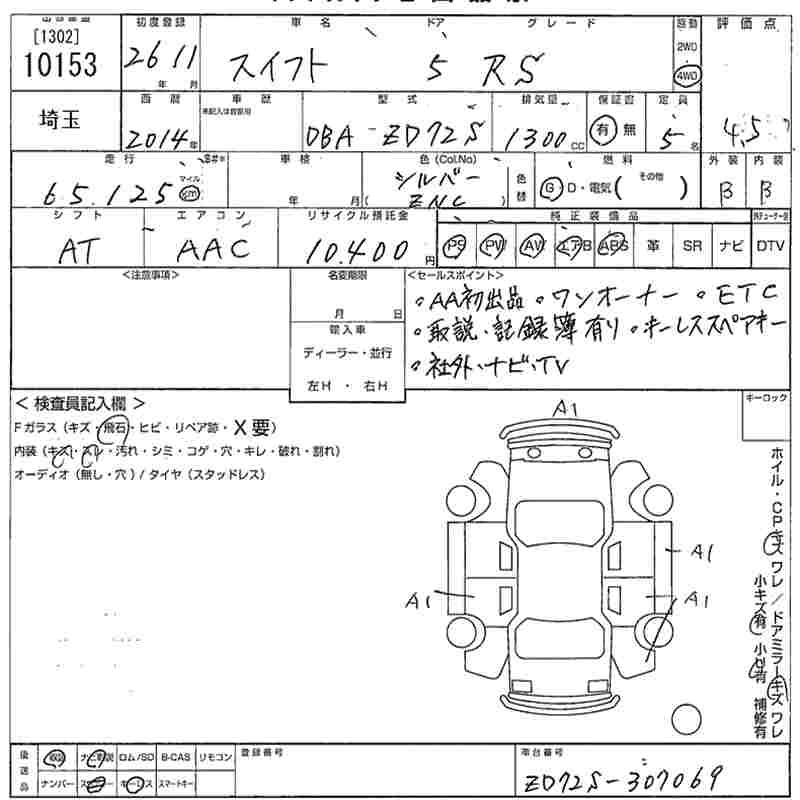 [1302]
10153
初度登録
26 11
年 月
車名
スイフト
ドア
5
グレード
RS
駆動
2WD
4WD
評価点
4.5
埼玉
西暦
2014年
車歴
未記入は自家用
型式
DBA-ZD72S
排気量
1300 CC
保証書
有 無
定員
5 名
走行
65.125
マイル
km
車検
年 月
色 (Col.No)
シルバー
( ZNC )
色替
燃料
G D・電気 ( その他 )
外装
B
内装
B
シフト
AT
エアコン
AAC
リサイクル預託金
10.400 円
純正装備品
PS PW AW エアB ABS 革 SR ナビ DTV
<注意事項>
名変期限
月 日
輸入車
ディーラー・並行
左H ・ 右H
<セールスポイント>
。AA初出品 。ワンオーナー 。ETC
。取説・記録簿有り 。キーレススペアキー
。社外・ナビ・TV
< 検査員記入欄 >
Fガラス (キズ・飛石・ヒビ・リペア跡・X要)
内装 (キズ・スレ・汚れ・シミ・コゲ・穴・キレ・破れ・割れ)
オーディオ (無し・穴) / タイヤ (スタッドレス)
キーロック
A1
A1
A1
A1
ホイル・CPキズ ワレ / ドアミラーキズ ワレ
小キズ有 小凹有 補修有
後送品
取説 ナビ取説 ロム/SD B-CAS リモコン
ナンバー キーレス スマートキー
登録番号
車台番号
ZD72S-307069